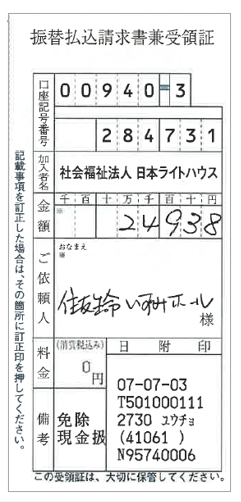 振替払込請求書兼受領証
口座記号番号
00940-3
284731
加入者名
社会福祉法人 日本ライトハウス
金額
千 百 十 万 千 百 十 円
※
24938
ご依頼人
おなまえ
※
住友生命いずみホール
様
料金
(消費税込み)
0円
日附印
07-07-03
T501000111
2730 ユウチョ
(41061 )
N95740006
備考
免除
現金扱
記載事項を訂正した場合は、その箇所に訂正印を押してください。
この受領証は、大切に保管してください。